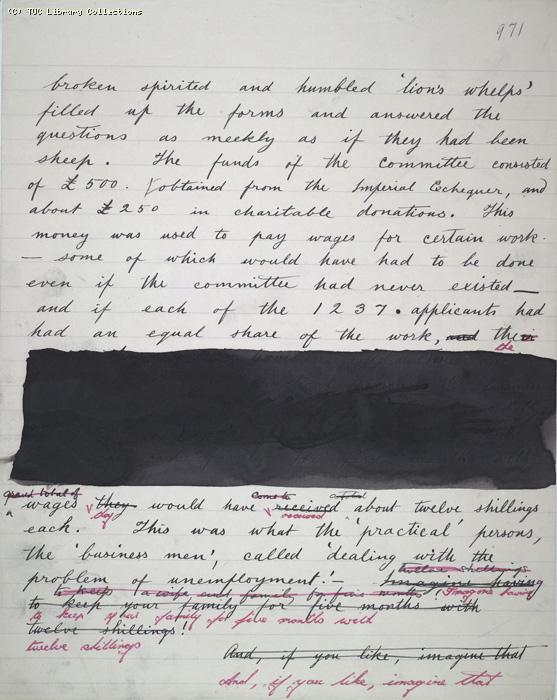 (C) TUC Library Collections
971
broken spirited and humbled 'lion's whelps'
filled up the forms and answered the
questions as meekly as if they had been
sheep. The funds of the committee consisted
of £500. obtained from the Imperial Exchequer, and
about £250 in charitable donations. This
money was used to pay wages for certain work.
— some of which would have had to be done
even if the committee had never existed —
and if each of the 1237 . applicants had
had an equal share of the work, and their
the
grand total of come to
wages they would have received about twelve shillings
they received
each. This was what the 'practical' persons,
the 'business men', called 'dealing with the
twelve shillings
problem of unemployment.' — Imagine having
to keep a wife and family for five months Imagine having
to keep your family for five months with
to keep your family for five months with
twelve shillings!
twelve shillings
And, if you like, imagine that
And, if you like, imagine that